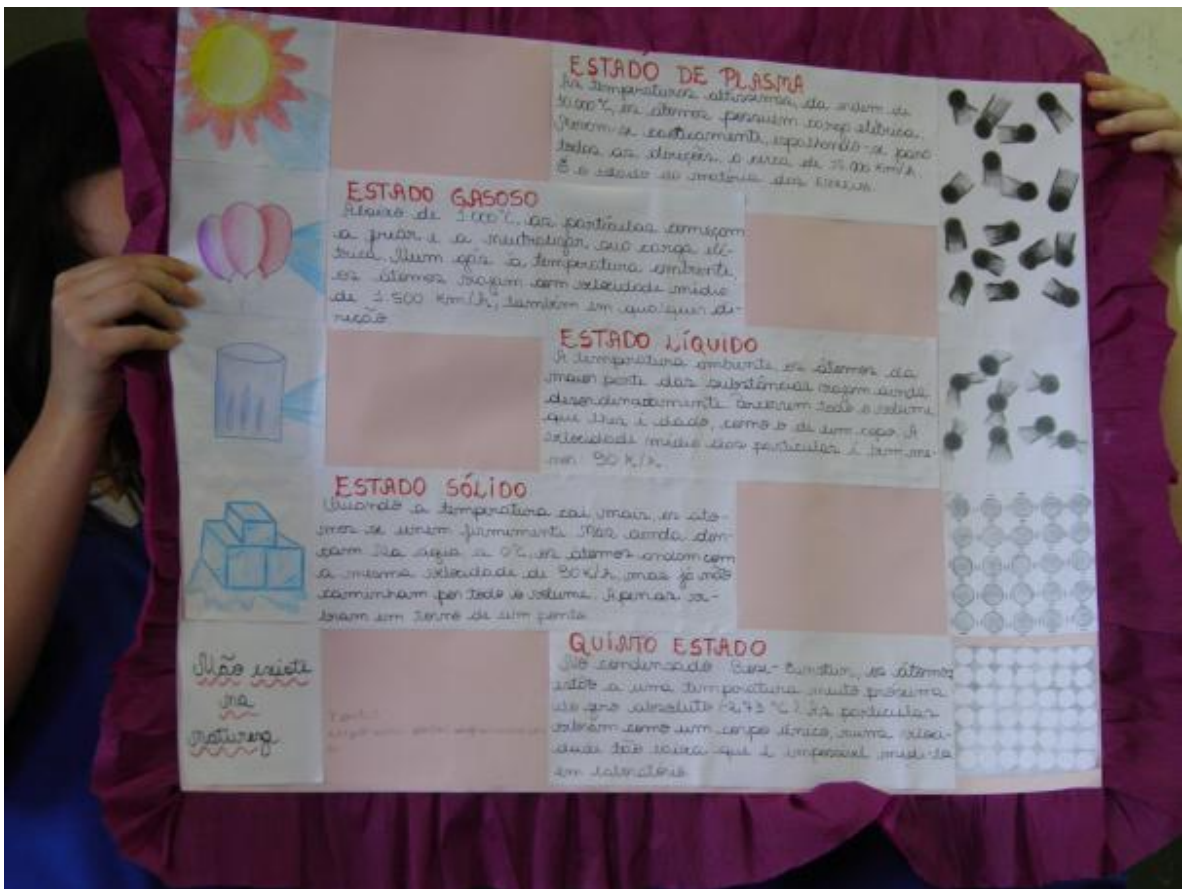 ESTADO DE PLASMA
As temperaturas altíssimas, da ordem de
10.000°C, os átomos possuem carga elétrica.
Movem-se caoticamente, espalhando-se para
todas as direções, a cerca de km/h.
É o estado da matéria das
ESTADO GASOSO
Abaixo de °C, as partículas começam
a friar e a neutralizar sua carga elé-
trica. Num gás à temperatura ambiente,
os átomos viajam com velocidade média
de 1.500 km/h, também em qualquer di-
reção
ESTADO LÍQUIDO
A temperatura ambiente, os átomos da
maior parte das substâncias viajam ainda
desordenadamente todo o volume
que lhes é dado, como o de um copo. A
velocidade média das partículas é bem me-
nor: 90 K/h.
ESTADO SÓLIDO
Quando a temperatura cai mais, os áto-
mos se unem firmemente. Mas ainda dan-
çam. Na água a 0°C, os átomos andam com
a mesma velocidade de 90 K/h, mas já não
caminham por todo o volume. Apenas vi-
bram em torno de um ponto.
Não existe
na
natureza
QUINTO ESTADO
No condensado Bose-Einstein, os átomos
estão a uma temperatura muito próxima
do zero absoluto (-273 °C). As partículas
vibram como um corpo único, numa veloci-
dade tão baixa que é impossível medi-la
em laboratório.